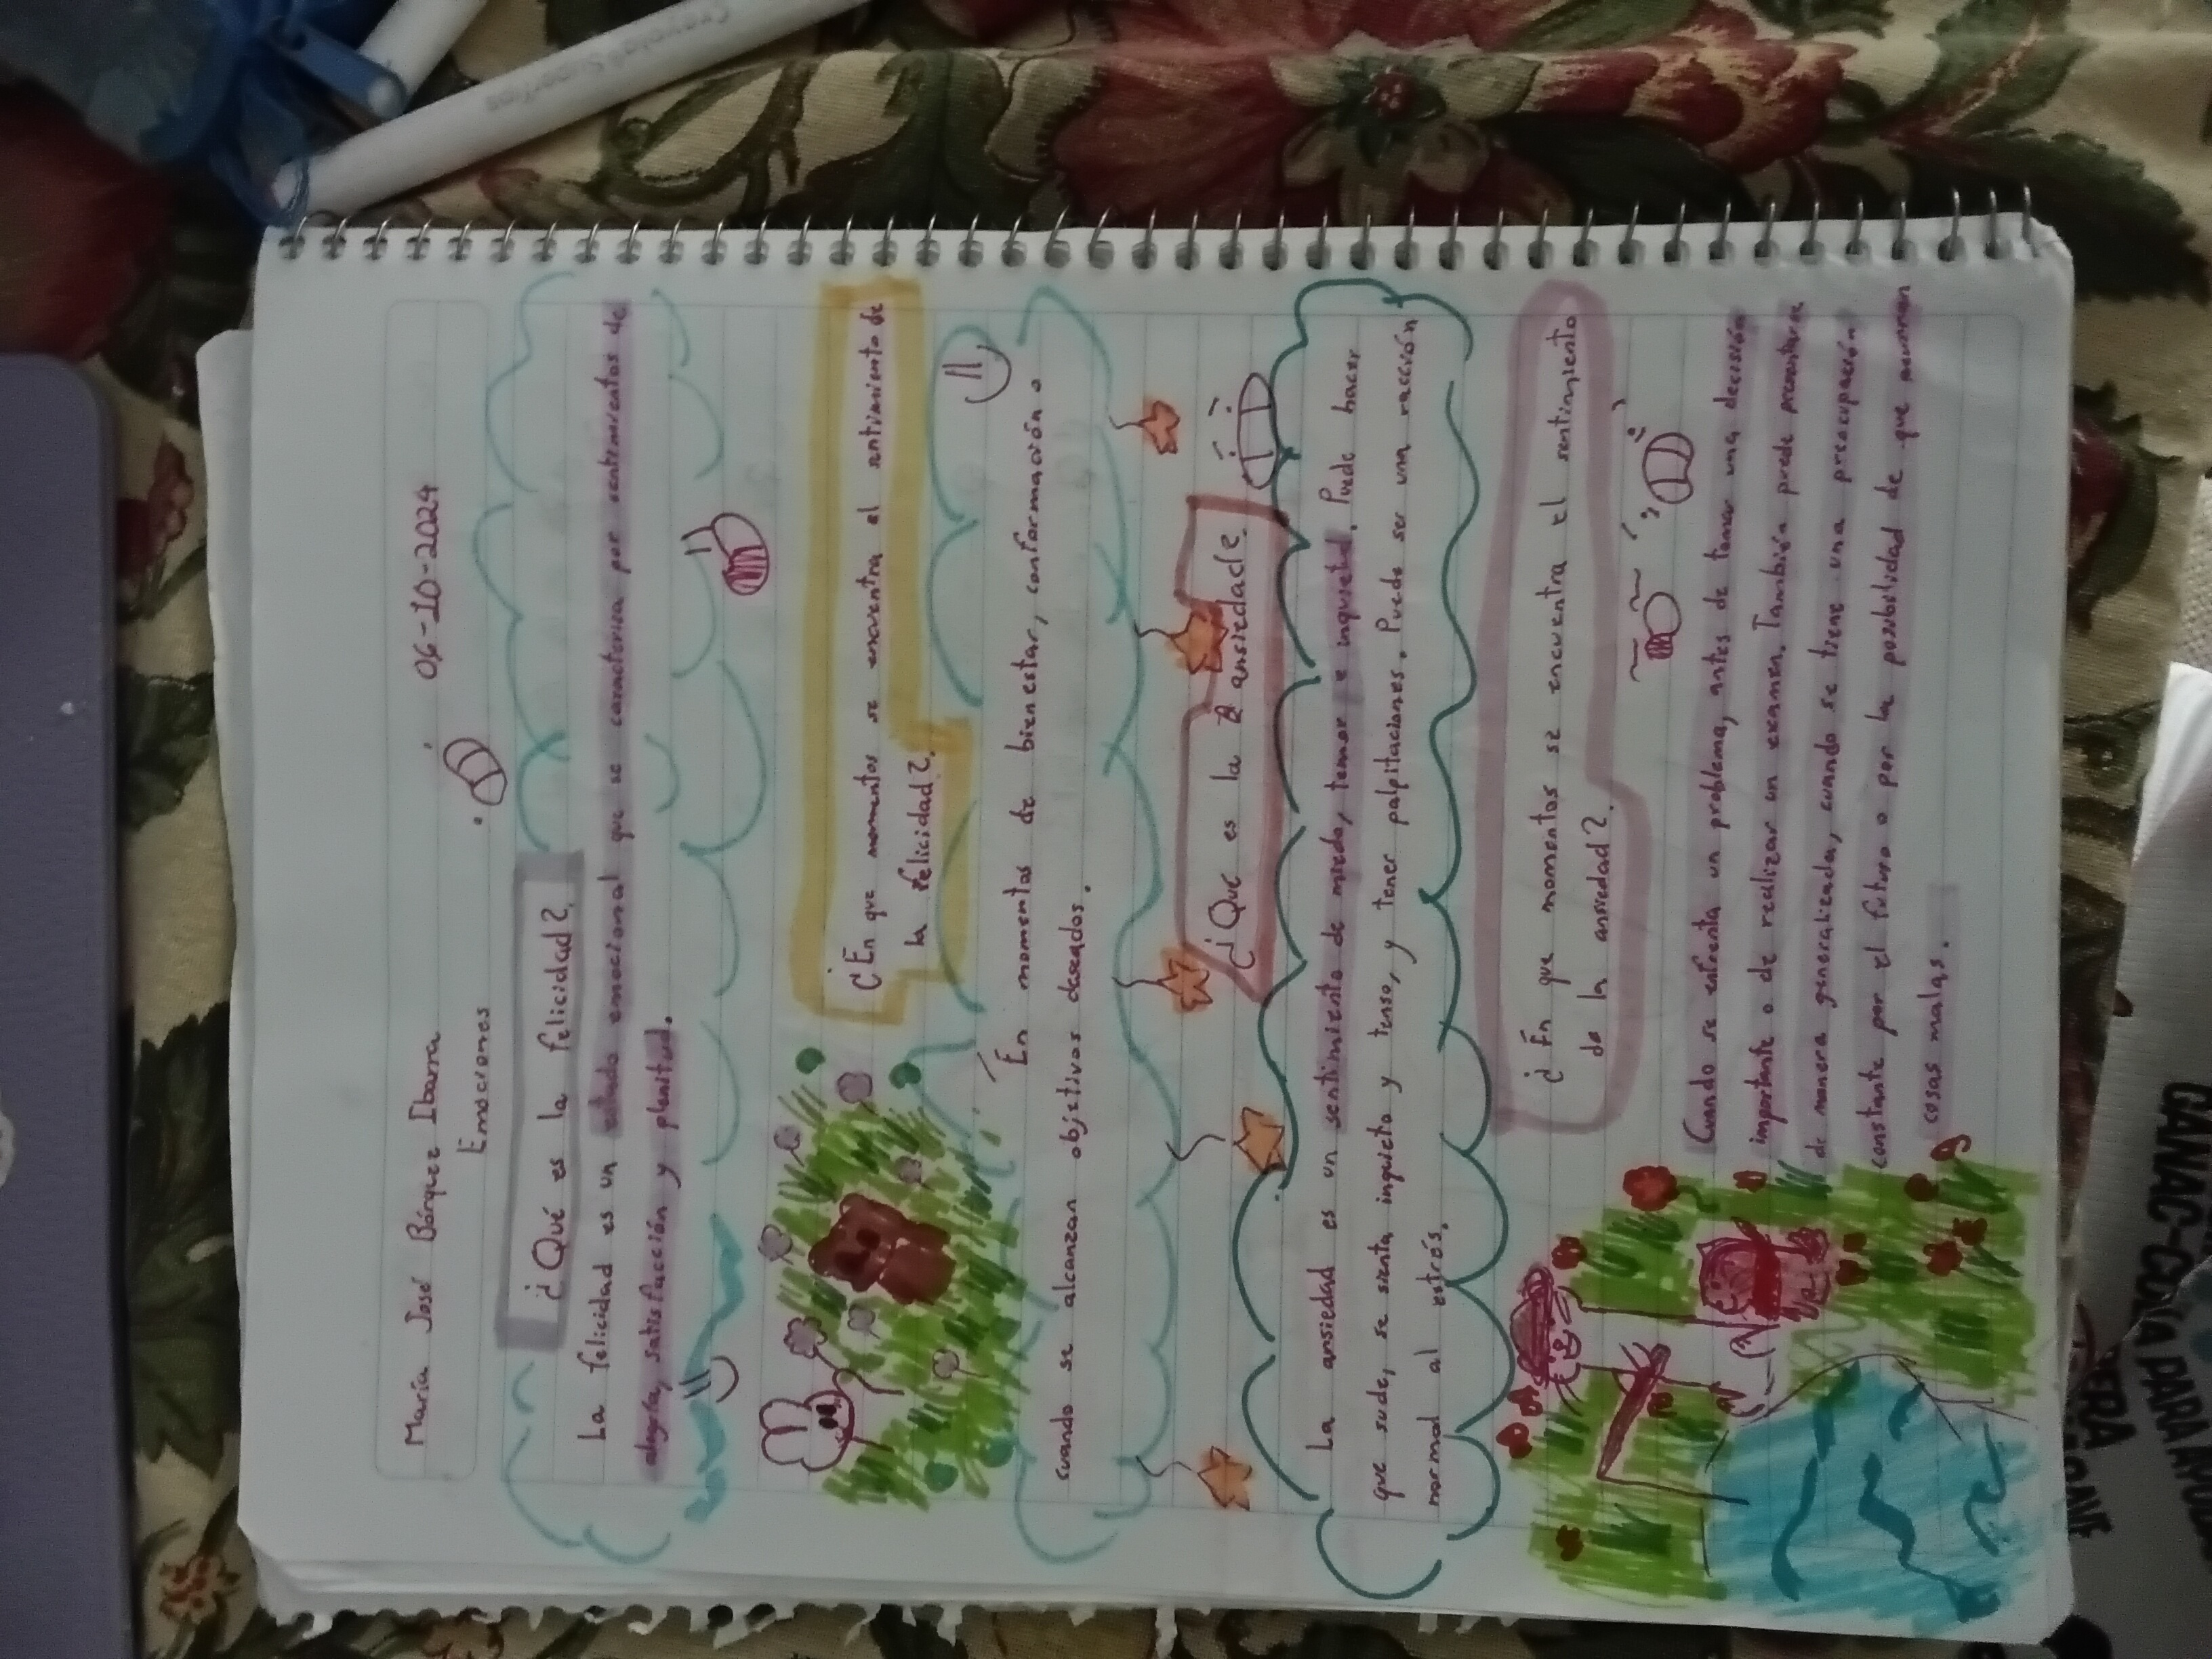 María José Bórquez Ibarra 06-10-2024
Emociones
¿Qué es la felicidad?
La felicidad es un estado emocional que se caracteriza por sentimientos de
alegría, satisfacción y plenitud.
¿En que momentos se encuentra el sentimiento de
la felicidad?
En momentos de bienestar, conformación o
cuando se alcanzan objetivos deseados.
¿Que es la ansiedad?
La ansiedad es un sentimiento de miedo, temor e inquietud. Puede hacer
que sude, se sienta inquieto y tenso, y tener palpitaciones. Puede ser una reacción
normal al estrés.
¿En que momentos se encuentra el sentimiento
de la ansiedad?
Cuando se enfrenta un problema, antes de tomar una decisión
importante o de realizar un examen. También puede presentarse
de manera generalizada, cuando se tiene una preocupación
constante por el futuro o por la posibilidad de que ocurran
cosas malas.
Crayola SuperTips